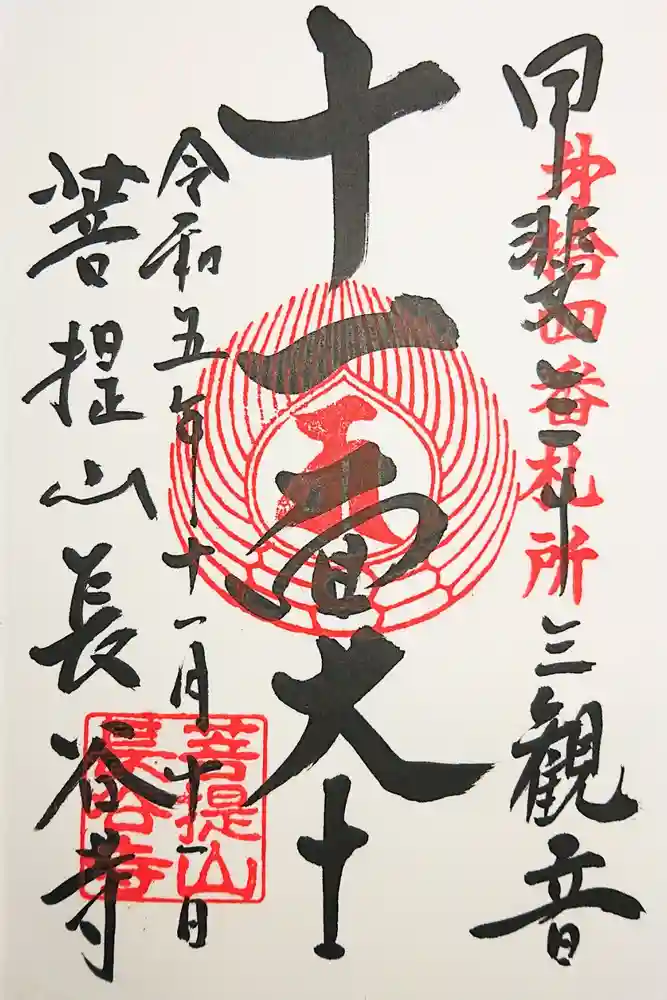 甲斐三十三観音
第拾四番札所
十一面大士
令和五年十一月十一日
菩提山長谷寺
菩提山
長谷寺